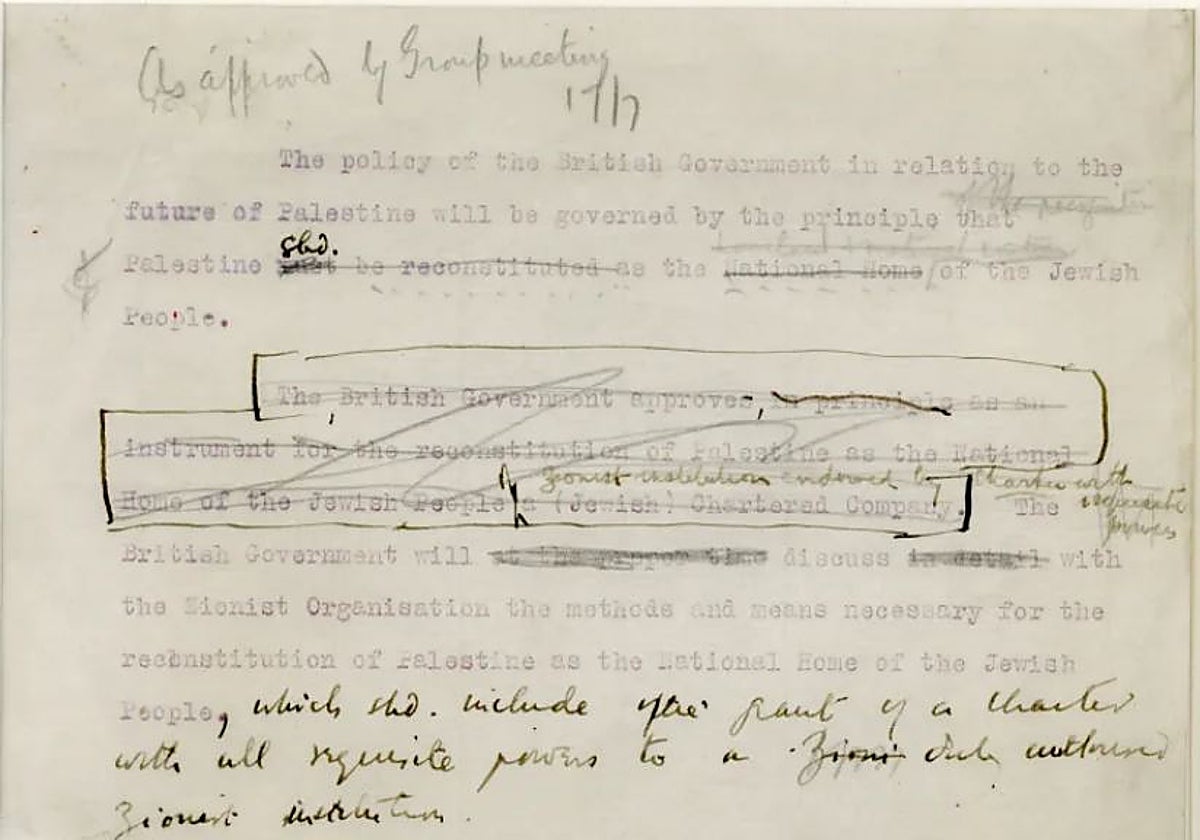 As approved by Group meeting
17/7
The policy of the British Government in relation to the
future of Palestine will be governed by the principle that
shd.
Palestine must be reconstituted as the National Home of the Jewish
People.
The British Government approves, in principle as an
instrument for the reconstitution of Palestine as the National
Zionist institution endowed by Charter with
Home of the Jewish People a (Jewish) Chartered Company. The requisite
powers
British Government will at the proper time discuss in detail with
the Zionist Organisation the methods and means necessary for the
reconstitution of Palestine as the National Home of the Jewish
People, which shd. include the grant of a Charter
with all requisite powers to a Zioni duly authorised
Zionist institution.